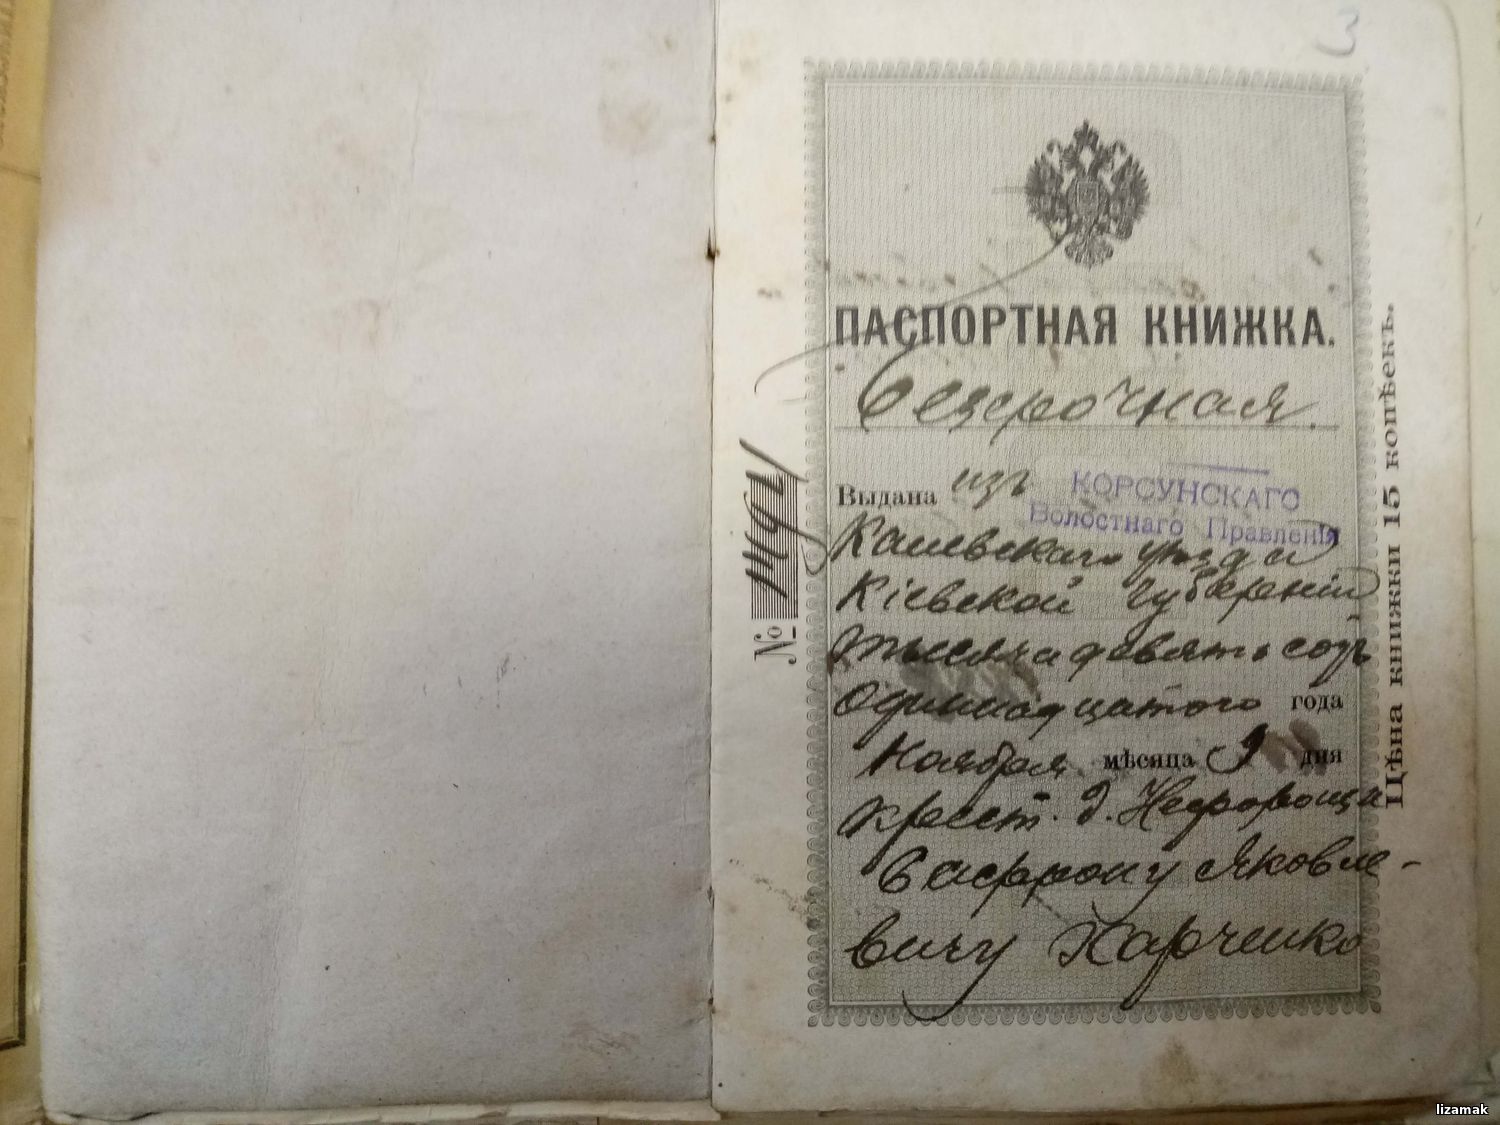 3
ПАСПОРТНАЯ КНИЖКА.
безсрочная.
Выдана изъ КОРСУНСКАГО
Волостнаго Правленія
Каневскаго уѣзда
Кіевской губерніи
тысяча девятьсотъ
одиннадцатого года
Ноября мѣсяца 9 дня
крест. д. Нехворощи
Яковле-
вичу Харченко
№
Цѣна книжки 15 копѣекъ.
lizamak